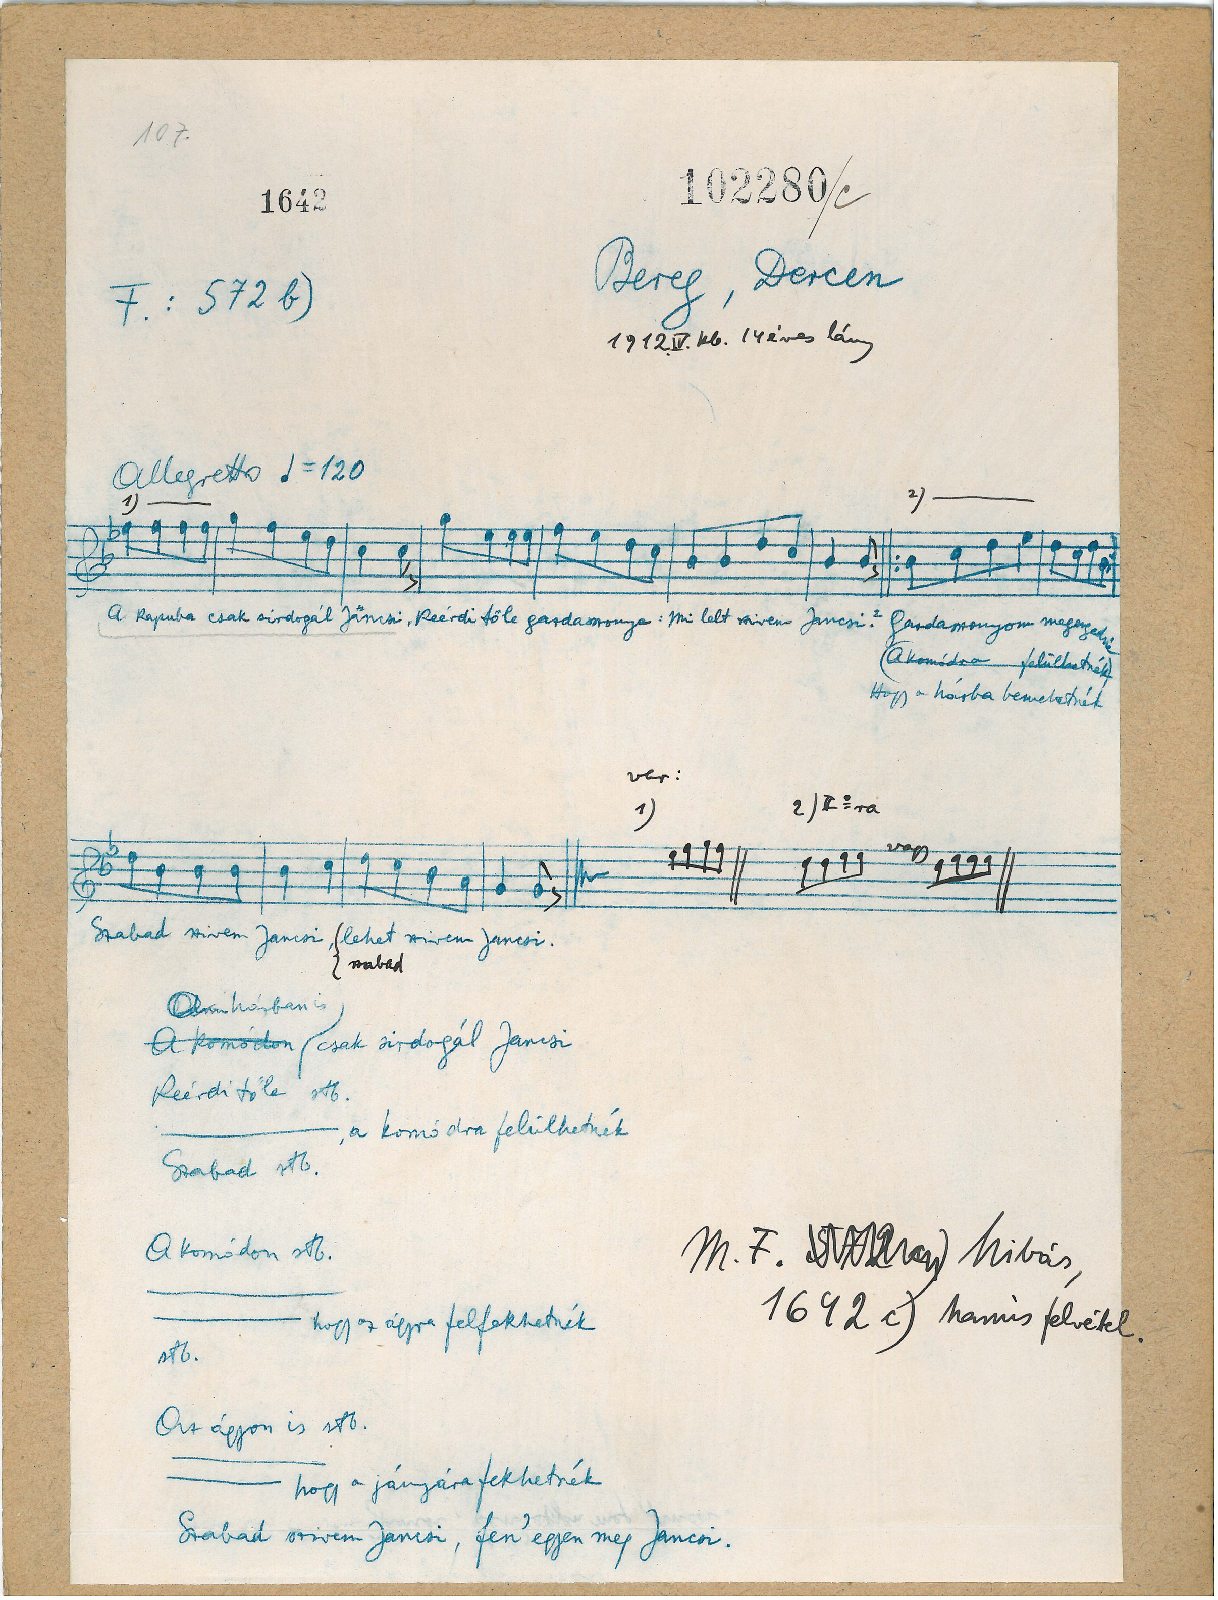 107.
1642
102280/c
F.: 572 b)
Bereg, Dercen
1912.IV. kb. 14 éves lány
Allegretto ♩=120
1)
2)
A kapuba csak sirdogál Jáncsi, Keérdi tőle gazdasszonya: Mi lelt szivem Jancsi? 2 Gazdasszonyom megengedné
(A komódra felülhetnék)
Hogy a házba bemehetnék
var:
1)
2) II=ra
Szabad szivem Jancsi, lehet szivem Jancsi.
szabad
házban is
A komódon csak sirdogál Jancsi
Keérdi tőle stb.
, a komódra felülhetnék
Szabad stb.
A komódon stb.
hogy az ágyra felfekhetnék
stb.
Az ágyon is stb.
hogy a jányára fekhetnék
Szabad szivem Jancsi, fen' egyen meg Jancsi.
M. F. hibás,
1642 c) hamis felvétel.